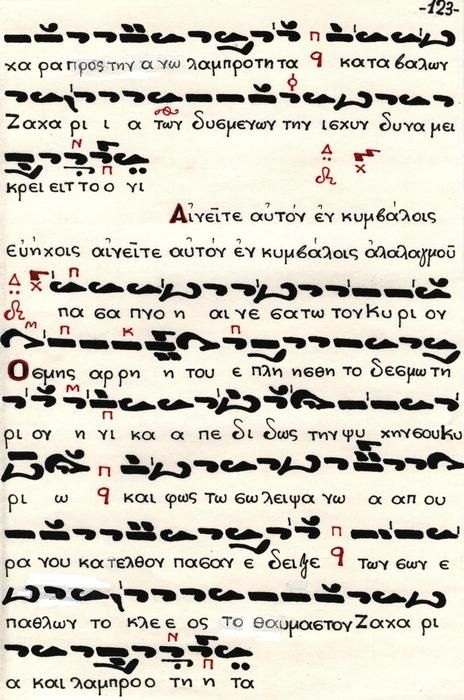 -123-
χα ρα προς την α νω λαμπροτη τα κατα βαλων
Ζαχα ρι ι α των δυσμενων την ισχυν δυνα μει
κρει ειτ το ο νι
Αἰνεῖτε αὐτόν ἐν κυμβάλοις
εὐήχοις αἰνεῖτε αὐτόν ἐν κυμβάλοις ἀλαλαγμοῦ
πα σα πνο η αι νε σα τω τον Κυ ρι ον
Οσμης αρ ρη η του ε πλη ησθη το δεσμω τη
ρι ον η νι κα α πε δι δως την ψυ χην σου Κυ
ρι ω και φως τω σω λειψα νω α απ ου
ρα νου κα τελθον πασαν ε δειξε των σων ε
παθλων το κλε ε ος το θαυμαστον Ζαχα ρι
α και λαμπρο ο τη η τα